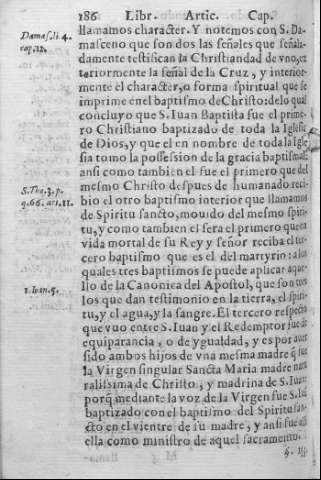 186 Libr. Artic. Cap.
llamamos character. Y notemos con S. Da-
Damas. li. 4.
cap. 12.
masceno que son dos las señales que señala-
damente testifican la Christiandad de vno, ex
terriormente la señal de la Cruz, y interior-
mente el character, o forma spiritual que se
imprime en el baptismo de Christo: de lo qual
concluyo que S. Iuan Baptista fue el prime-
ro Christiano baptizado de toda la Iglesia
de Dios, y que el en nombre de toda la Igle
sia tomo la possession de la gracia baptismal:
ansi como tambien el fue el primero que del
S. Tho. 3. p.
q. 66. art. 11.
mesmo Christo despues de humanado reci-
bio el otro baptismo interior que llamamos
de Spiritu sancto, mouido del mesmo spiri-
tu, y como tambien el sera el primero que en
vida mortal de su Rey y señor reciba el ter-
cero baptismo que es el del martyrio: a los
quales tres baptismos se puede aplicar aque-
1. Ioan. 5.
llo de la Canonica del Apostol, que son tres
los que dan testimonio en la tierra, el spiri-
tu, y el agua, y la sangre. El tercero respecto
que vuo entre S. Iuan y el Redemptor fue de
equiparancia, o de ygualdad, y es por auer
sido ambos hijos de vna mesma madre q̃ fue
la Virgen singular Sancta Maria madre natu
ralissima de Christo, y madrina de S. Iuan:
porq̃ mediante la voz de la Virgen fue S. Iuã
baptizado con el baptismo del Spiritu san-
cto en el vientre de su madre, y ansi fue alli
ella como ministro de aquel sacramento.